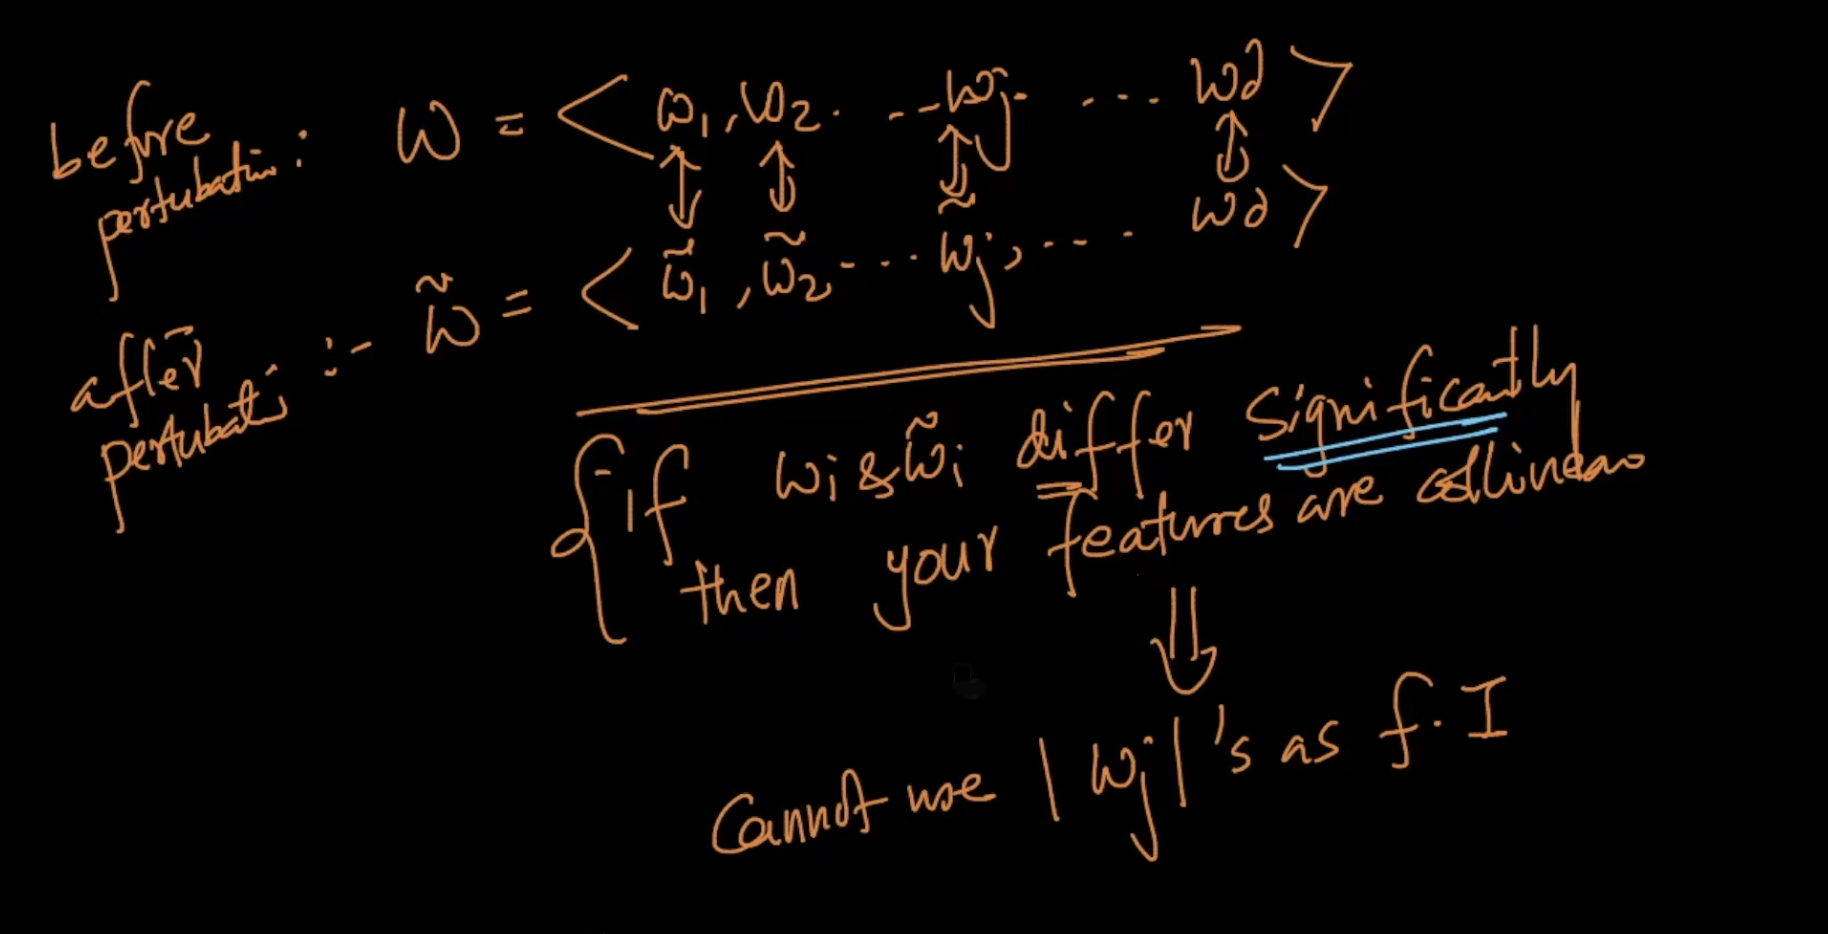 before pertubation: w = < w₁, w₂. ... wj. ... wd >
after pertubati :- w̃ = < w̃₁, w̃₂ ... w̃j, ... wd >
{ if wi & w̃i differ significantly
then your features are collinear
⇓
Cannot use |wj|'s as f.I